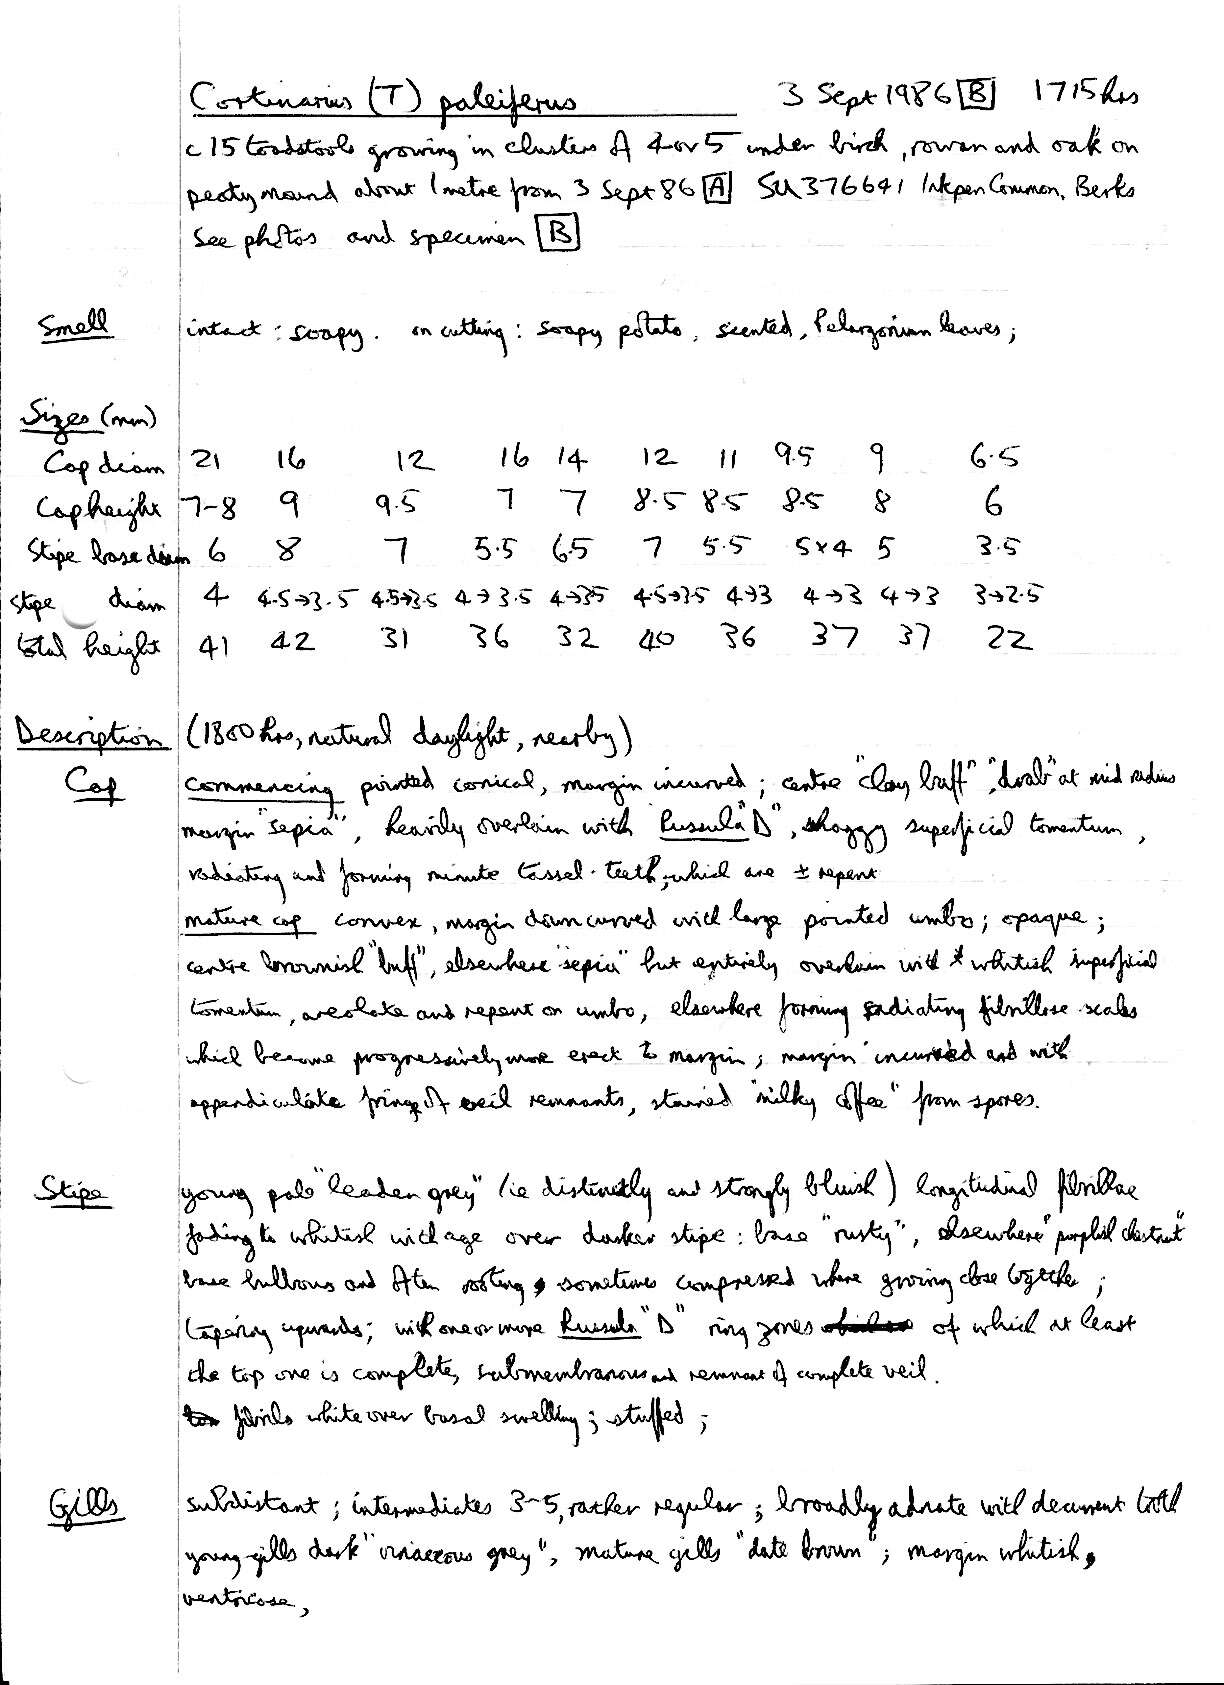 Cortinarius (T) paleiferus 3 Sept 1986 [B] 1715hrs
c 15 toadstools growing in clusters of 4 or 5 under birch, rowan and oak on
peaty mound about 1 metre from 3 Sept 86 [A] SU 376641 Inkpen Common, Berks
See photos and specimen [B]
Smell intact : soapy. on cutting : soapy potato, scented, Pelargonium leaves;
Sizes (mm)
Cap diam 21 16 12 16 14 12 11 9.5 9 6.5
Cap height 7-8 9 9.5 7 7 8.5 8.5 8.5 8 6
Stipe base diam 6 8 7 5.5 6.5 7 5.5 5x4 5 3.5
Stipe diam 4 4.5→3.5 4.5→3.5 4→3.5 4→3.5 4.5→3.5 4→3 4→3 4→3 3→2.5
total height 41 42 31 36 32 40 36 37 37 22
Description (1800hrs, natural daylight, nearby)
Cap commencing pointed conical, margin incurved; centre "clay buff", "drab" at mid radius
margin "sepia", heavily overlain with Russula "D", shaggy superficial tomentum,
radiating and forming minute tassel-teeth, which are ± repent
mature cap convex, margin down curved with large pointed umbo; opaque;
centre brownish "buff", elsewhere "sepia" but entirely overlain with ± whitish superficial
tomentum, areolate and repent on umbo, elsewhere forming radiating fibrillose scales
which become progressively more erect to margin; margin incurved and with
appendiculate fringe of veil remnants, stained "milky coffee" from spores.
Stipe young pale "leaden grey" (ie distinctly and strongly bluish) longitudinal fibrillae
fading to whitish with age over darker stipe : base "rusty", elsewhere "purplish chestnut"
base bulbous and often rooting, sometimes compressed where growing close together;
tapering upwards; with one or more Russula "D" ring zones of which at least
the top one is complete, submembranous and remnant of complete veil.
fibrils white over basal swelling; stuffed;
Gills subdistant; intermediates 3-5, rather regular; broadly adnate with decurrent tooth
young gills dark "vinaceous grey", mature gills "date brown"; margin whitish,
ventricose,